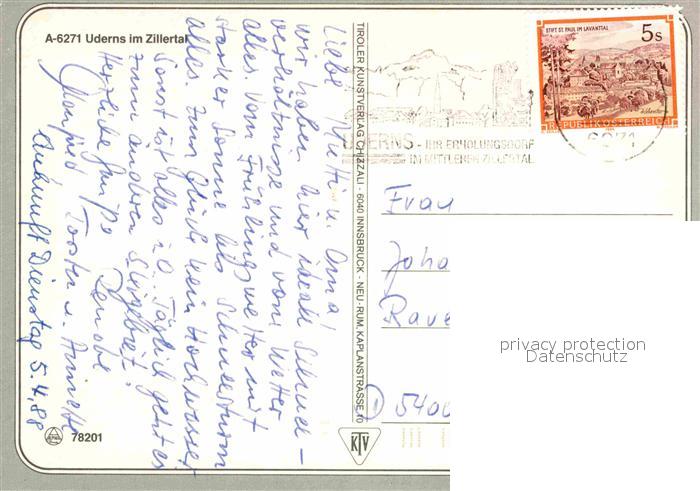 A-6271 Uderns im Zillertal
Liebe Mutti u. Oma!
wir haben hier ideale Schnee-
verhältnisse und vom Wetter
alles vom Frühlingswetter mit
starker Sonne bis Schneesturm
alles. Zum Glück kein Hochwasser
Sonst ist alles i.O. Täglich geht es
zum anderen Skigebiet.
Herzliche Grüße
Manfred Torsten u. Annette
Ankunft Dienstag 5.4.88
78201
TIROLER KUNSTVERLAG CHIZZALI · 6040 INNSBRUCK - NEU-RUM, KAPLANSTRASSE 10
KTV
UDERNS - IHR ERHOLUNGSDORF
IM MITTLEREN ZILLERTAL
STIFT ST. PAUL IM LAVANTTAL
5s
REPUBLIK ÖSTERREICH
6271
Frau
Joha
Rave
D 5400
privacy protection
Datenschutz